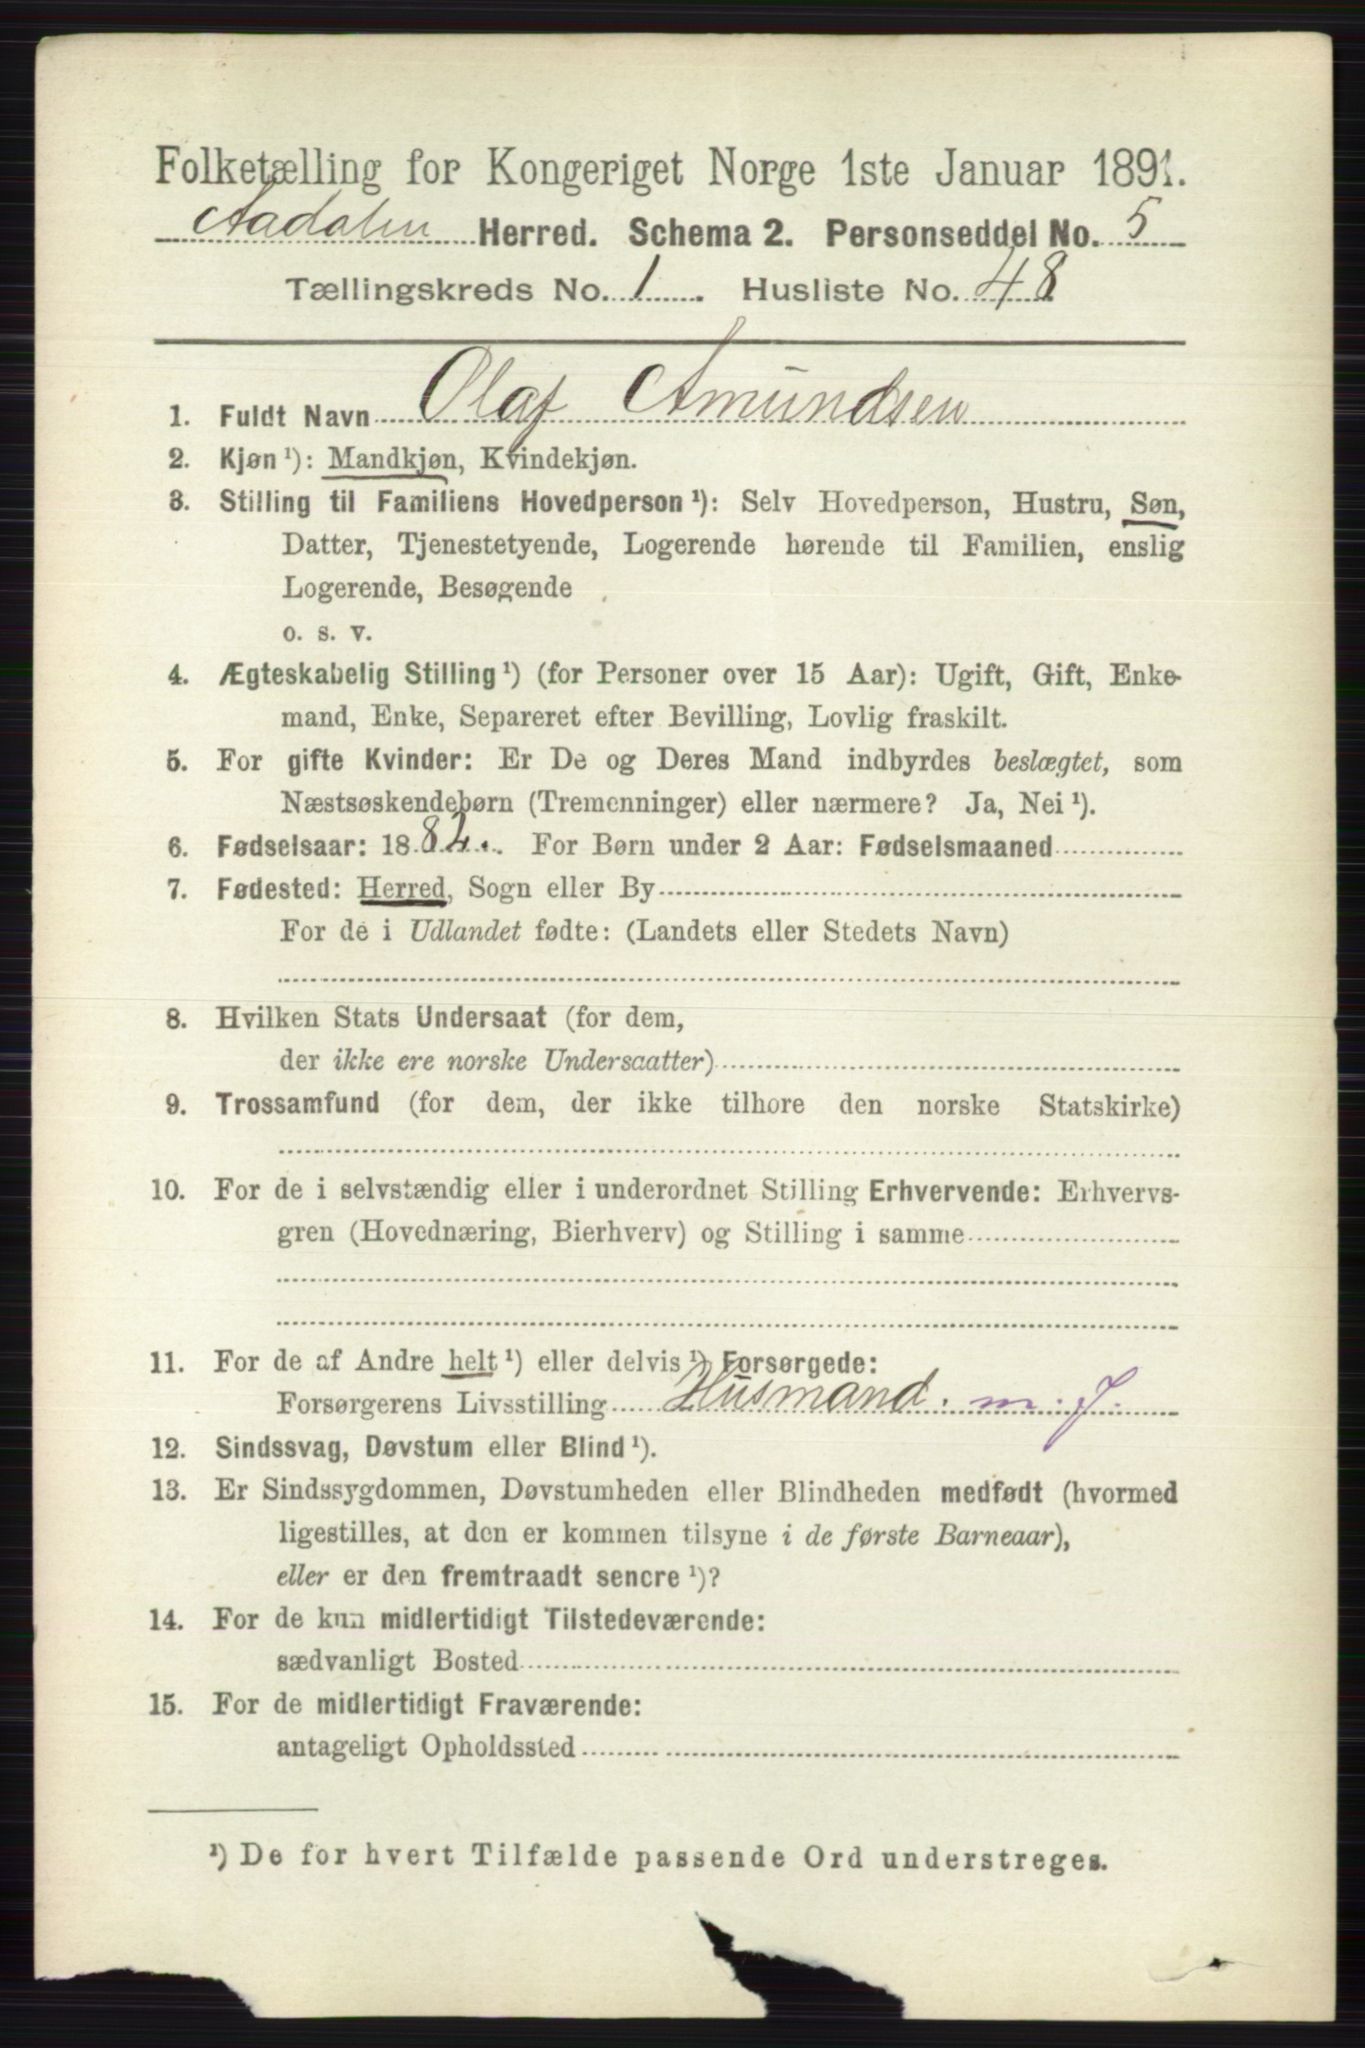 Folketælling for Kongeriget Norge 1ste Januar 1891.
Aadalen Herred. Schema 2. Personseddel No. 5
Tællingskreds No. 1. Husliste No. 48
1. Fuldt Navn Olaf Amundsen
2. Kjøn ¹): Mandkjøn, Kvindekjøn.
3. Stilling til Familiens Hovedperson ¹): Selv Hovedperson, Hustru, Søn,
Datter, Tjenestetyende, Logerende hørende til Familien, enslig
Logerende, Besøgende
o. s. v.
4. Ægteskabelig Stilling ¹) (for Personer over 15 Aar): Ugift, Gift, Enke-
mand, Enke, Separeret efter Bevilling, Lovlig fraskilt.
5. For gifte Kvinder: Er De og Deres Mand indbyrdes beslægtet, som
Næstsøskendebørn (Tremenninger) eller nærmere? Ja, Nei ¹).
6. Fødselsaar: 1882. For Børn under 2 Aar: Fødselsmaaned
7. Fødested: Herred, Sogn eller By
For de i Udlandet fødte: (Landets eller Stedets Navn)
8. Hvilken Stats Undersaat (for dem,
der ikke ere norske Undersaatter)
9. Trossamfund (for dem, der ikke tilhøre den norske Statskirke)
10. For de i selvstændig eller i underordnet Stilling Erhvervende: Erhvervs-
gren (Hovednæring, Bierhverv) og Stilling i samme
11. For de af Andre helt ¹) eller delvis ¹) Forsørgede:
Forsørgerens Livsstilling Husmand. m. J.
12. Sindssvag, Døvstum eller Blind ¹).
13. Er Sindssygdommen, Døvstumheden eller Blindheden medfødt (hvormed
ligestilles, at den er kommen tilsyne i de første Barneaar),
eller er den fremtraadt senere ¹)?
14. For de kun midlertidigt Tilstedeværende:
sædvanligt Bosted
15. For de midlertidigt Fraværende:
antageligt Opholdssted
¹) De for hvert Tilfælde passende Ord understreges.